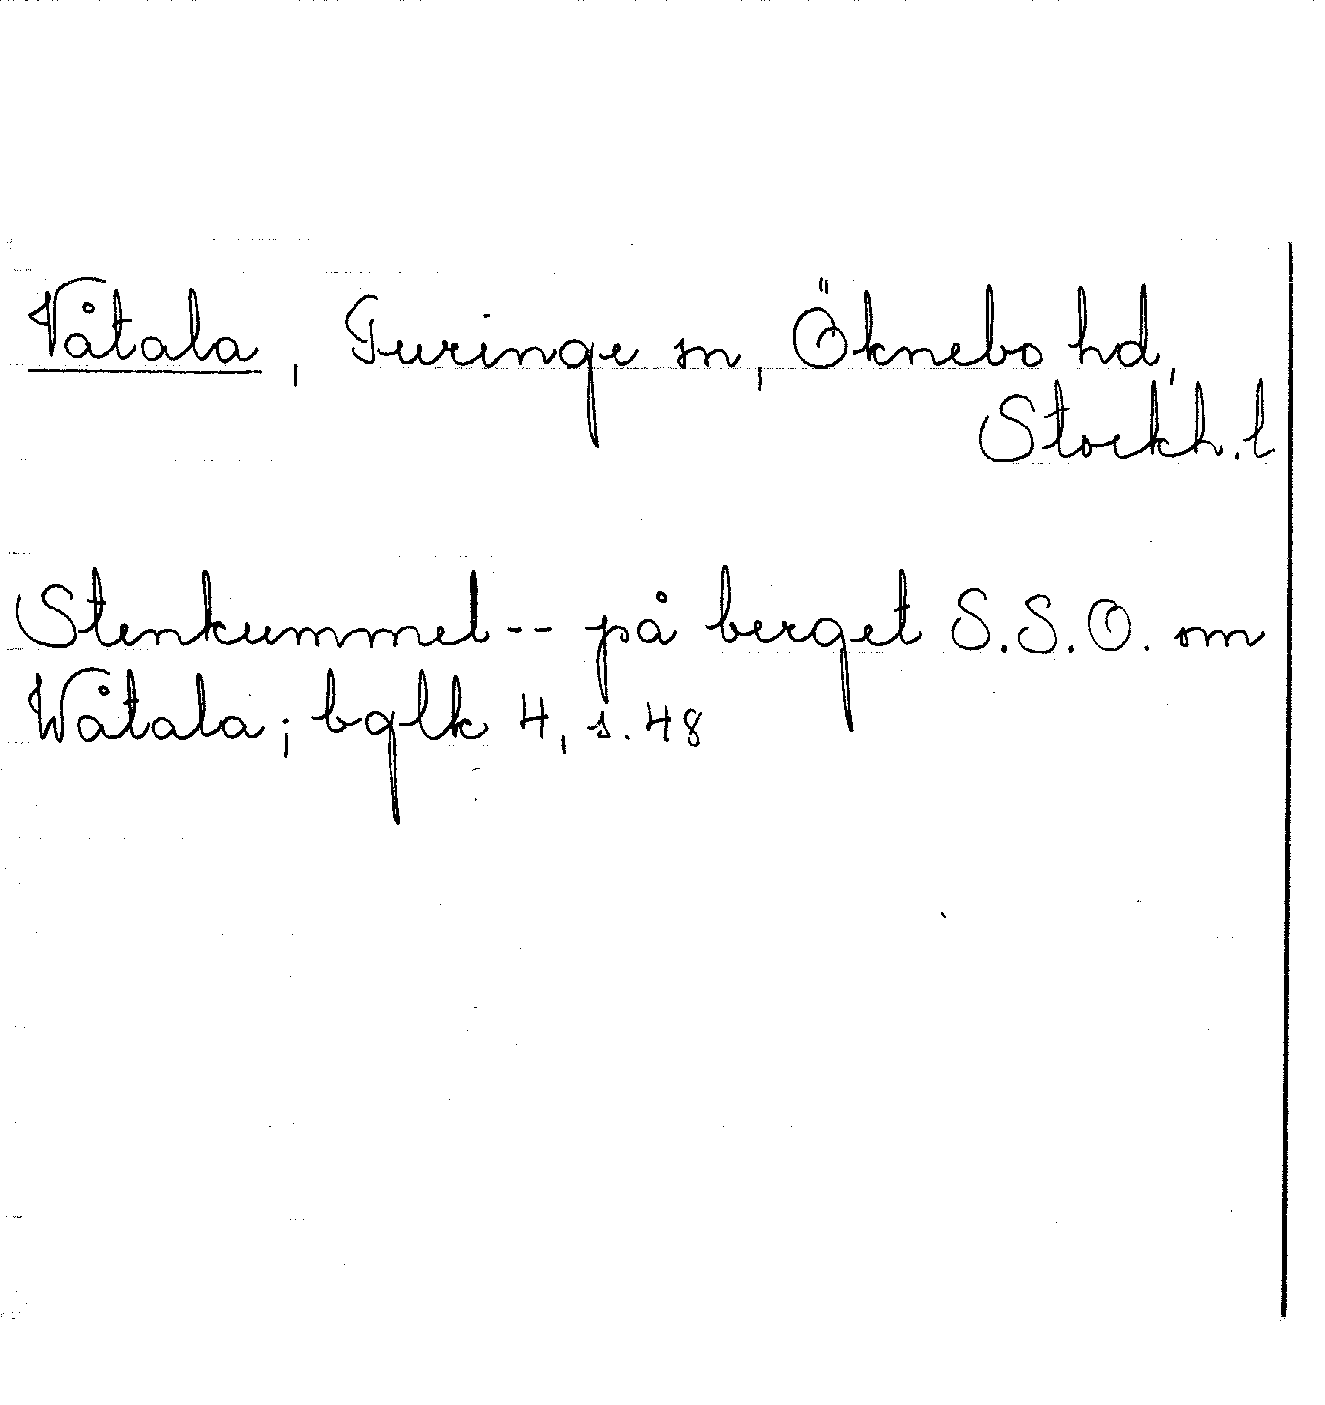 Våtala, Turinge sn, Öknebo hd,
Stockh. l
Stenkummel -- på berget S.S.O. om
Wåtala; bglk 4, s. 48